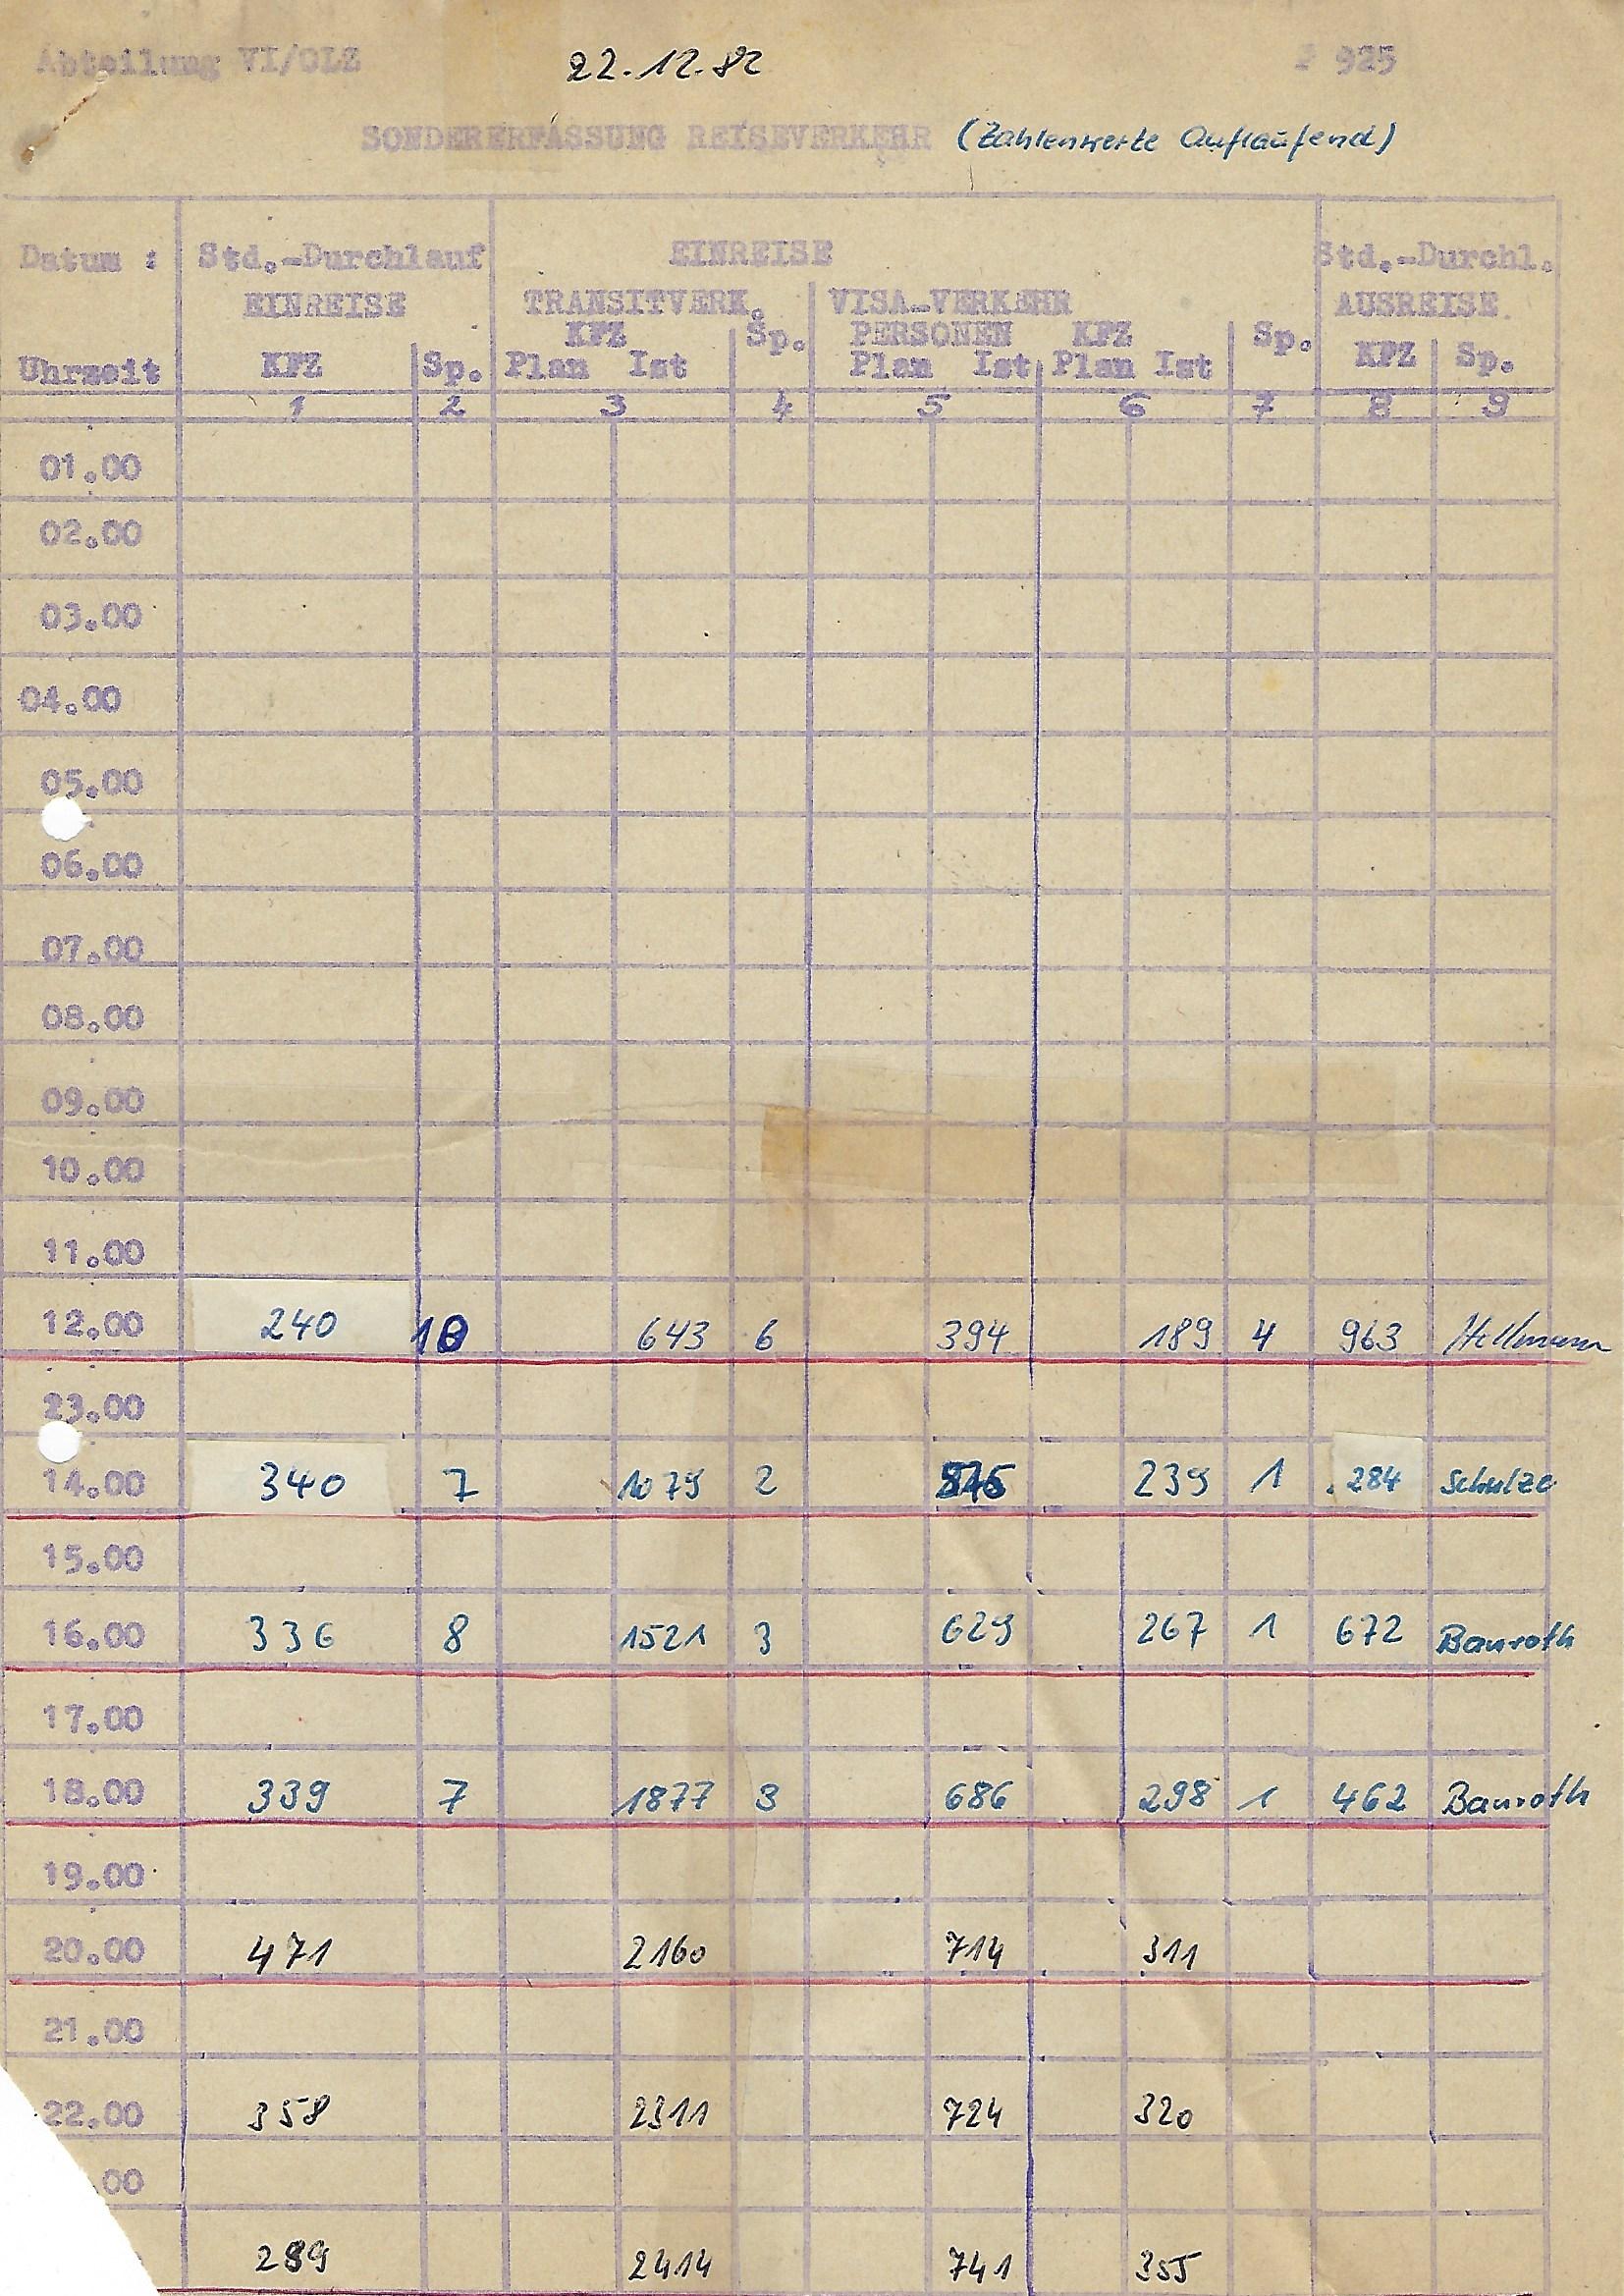 Abteilung VI/OLZ 22.12.82 925
SONDERERFASSUNG REISEVERKEHR (Zahlenwerte Auflaufend)
Datum : Std.-Durchlauf EINREISE Std.-Durchl.
EINREISE TRANSITVERK. VISA-VERKEHR AUSREISE
KFZ Sp. PERSONEN KFZ Sp.
Uhrzeit KFZ Sp. Plan Ist Plan Ist Plan Ist KFZ Sp.
1 2 3 4 5 6 7 8 9
01.00
02.00
03.00
04.00
05.00
06.00
07.00
08.00
09.00
10.00
11.00
12.00 240 10 643 6 394 189 4 963
23.00
14.00 340 7 1079 2 239 1 284 Schulze
15.00
16.00 336 8 1521 3 629 267 1 672 Bauroth
17.00
18.00 339 7 1877 3 686 298 1 462 Bauroth
19.00
20.00 471 2160 714 311
21.00
22.00 358 2311 724 320
00
289 2414 741 355